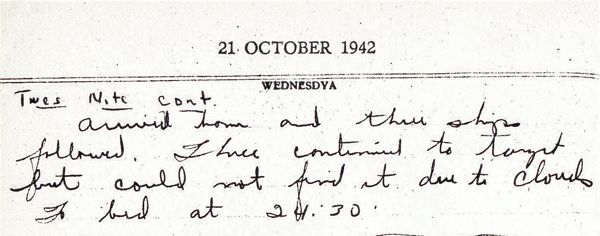 21 OCTOBER 1942
WEDNESDYA
Tues Nite cont.
arrived home and three ships
followed. Three continued to target
but could not find it due to clouds
To bed at 24:30.